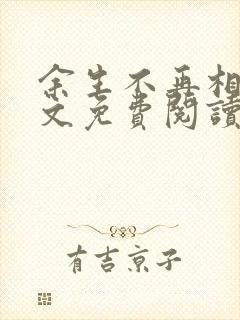 余生不再相
文免費閱讀
有吉京子